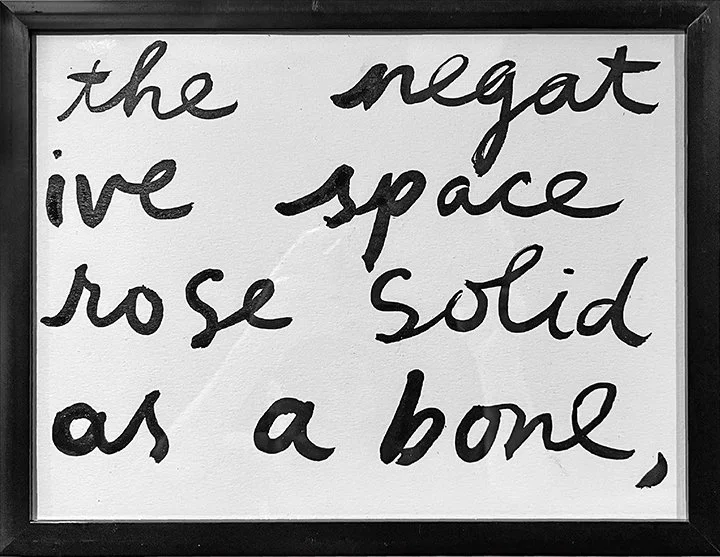 the negat
ive space
rose solid
as a bone,